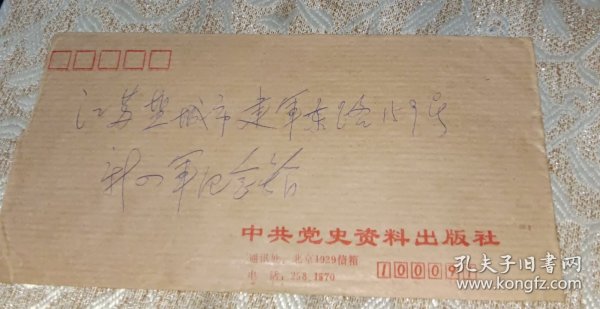 江苏盐城市建军东路159号
新四军纪念馆
中共党史资料出版社
通讯处:北京1929信箱
电 话:258.1870
10009
孔夫子旧书网
www.kongfz.com